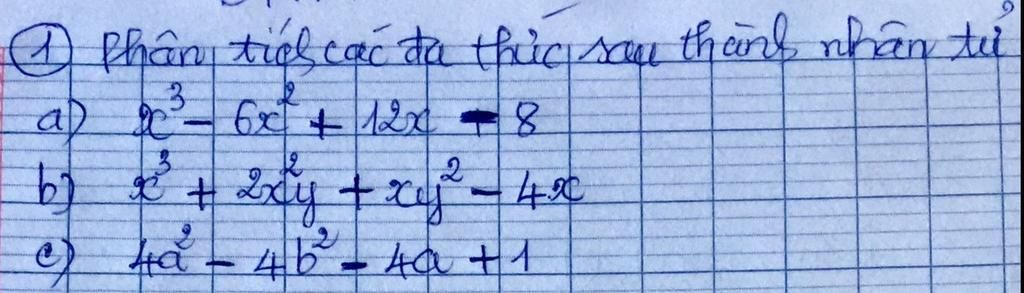 ① Phân tích các đa thức sau thành nhân tử
a) x³ - 6x² + 12x - 8
b) x³ + 2x²y + xy² - 4x
c) 4a² - 4b² - 4a + 1